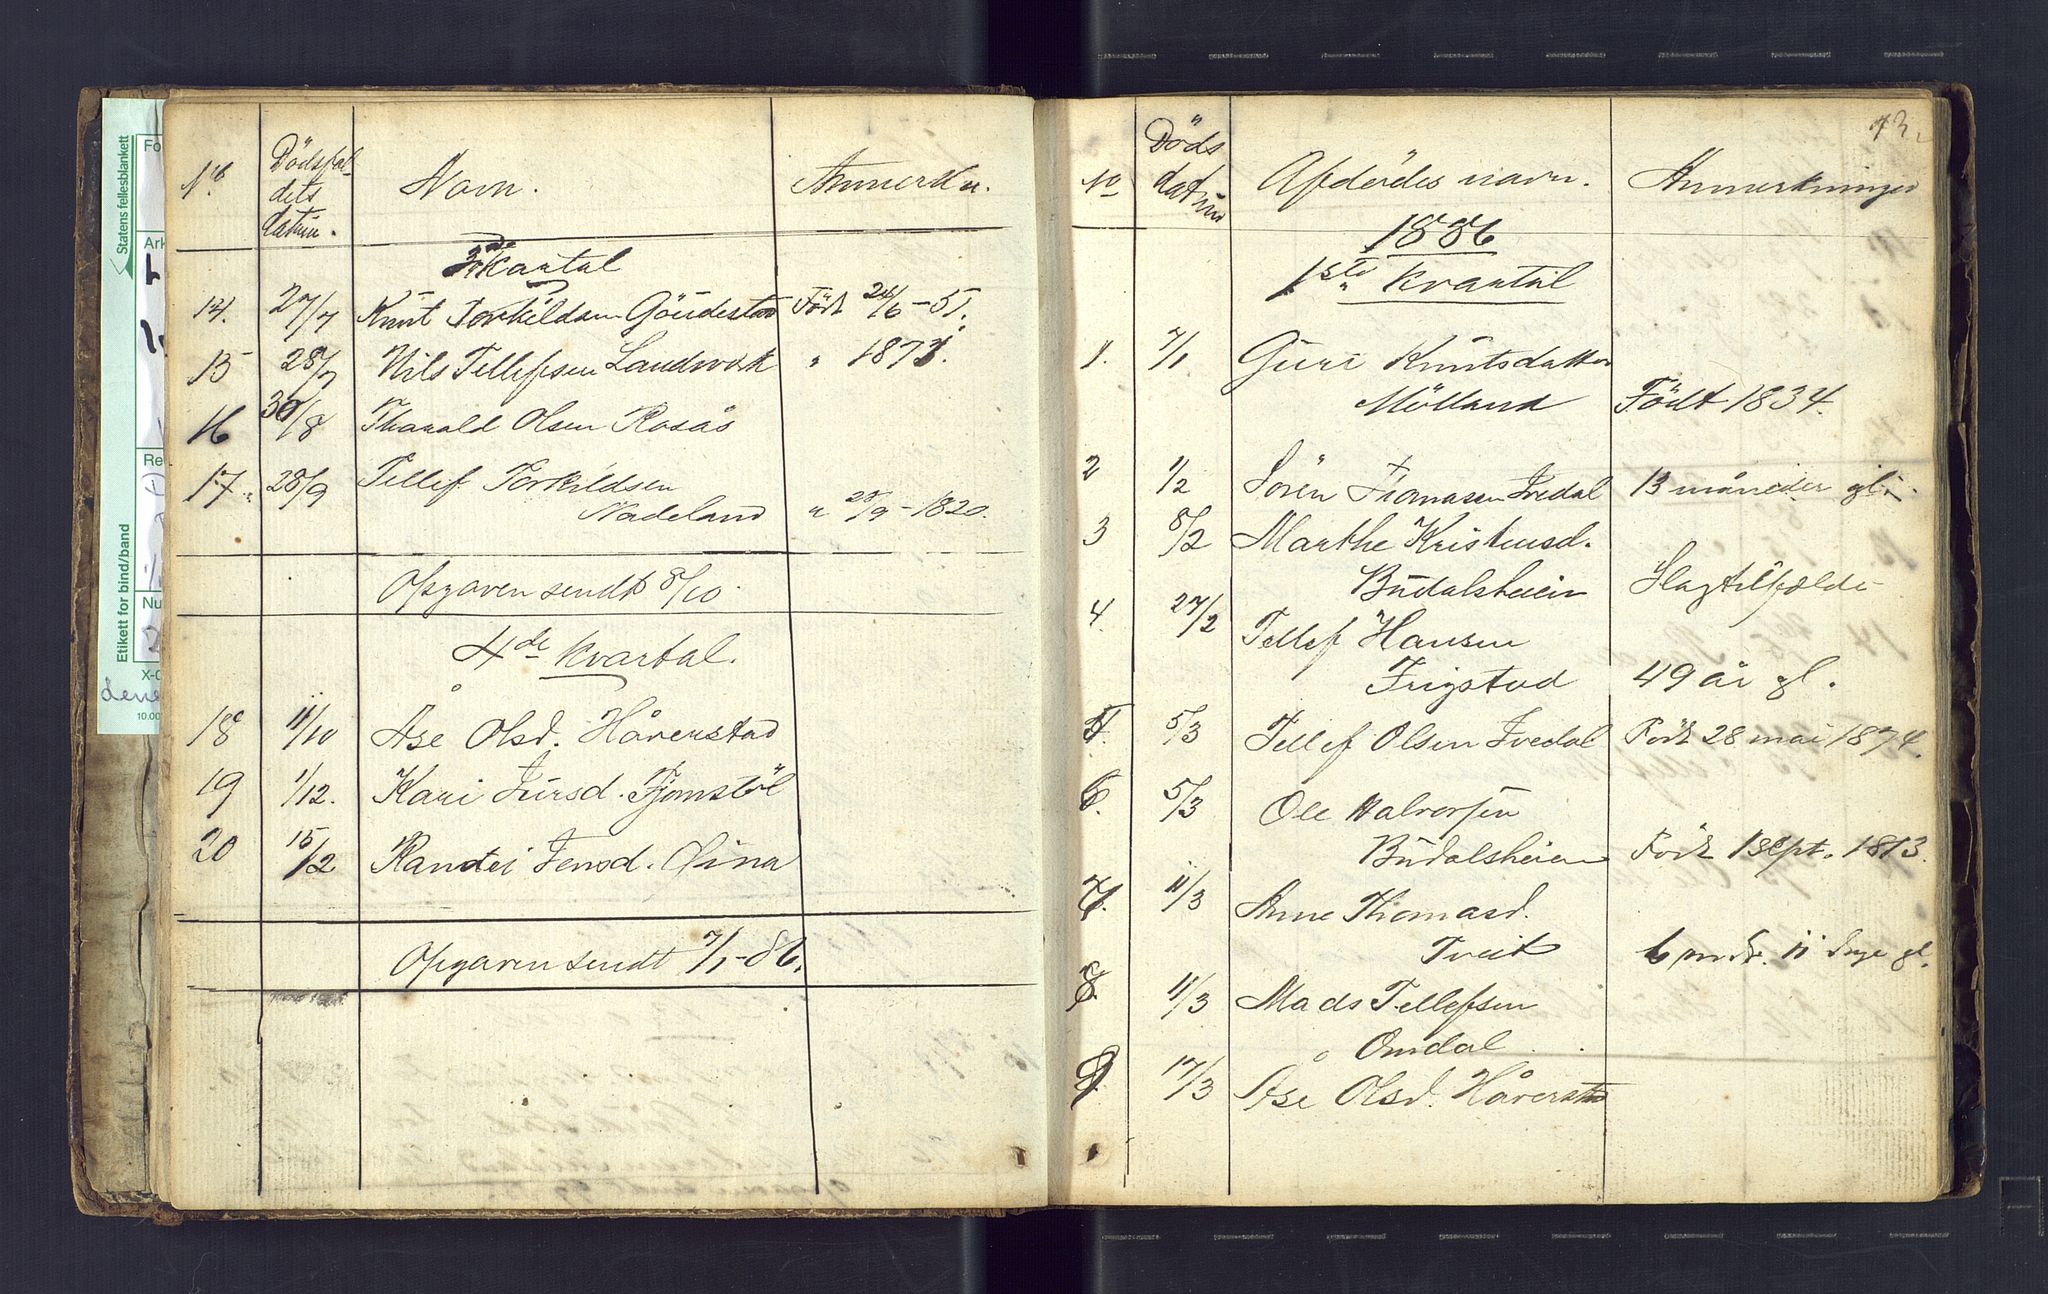 Statens fellesblankett
Etikett for bind/band
No Dødsfaldets datum. Navn. Anmerkn.
3die Kvartal
14. 27/7 Knut Torkildsen Göudestad Födt 24/6-51.
15 28/7 Nils Tellefsen Landverk " 1871.
16 30/8 Tharald Olsen Rosås
17. 28/9 Tellef Torkildsen
Nadeland " 28/9-1820.
Opgaven sendt 8/10.
4de Kvartal.
18 11/10 Åse Olsd. Håverstad
19 1/12. Kari Jursd. Fjomstöl
20 15/12 Randei Jensd. Qvina
Opgaven sendt 7/1-86.
73.
No Döds datum Afdödes navn. Anmerkninger
1886
1ste Kvartal
1. 7/1 Guri Knutsdatter
Mölland Födt 1834.
2 1/2 Sören Tromasen Ivedal 13 måneder gl.
3 8/2 Marthe Kristensd.
Budalsheien Slagtilfælde
4. 27/2 Tellef Hansen
Frigstad 49 år gl.
5. 5/3 Tellef Olsen Ivedal Födt 28 mai 1874.
6. 5/3 Ole Halvorsen
Budalsheien Födt 1 sept. 1813.
7. 11/3 Anne Thomasd.
Tveit 6 mdr. 11 dage gl.
8. 11/3 Mads Tellefsen
Omdal
9. 17/3 Åse Olsd. Håverstad